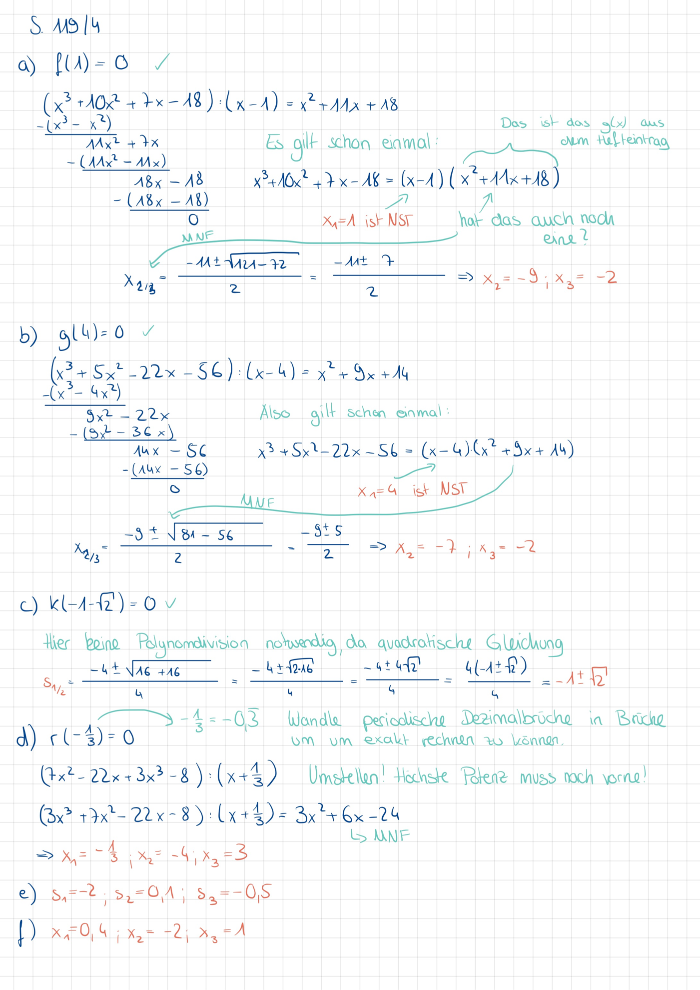 S. 119/4
a) f(1) = 0 ✓
(x³ + 10x² + 7x − 18) : (x − 1) = x² + 11x + 18
−(x³ − x²)
11x² + 7x
− (11x² − 11x)
18x − 18
− (18x − 18)
0
Es gilt schon einmal:
Das ist das g(x) aus
dem Hefteintrag
x³ + 10x² + 7x − 18 = (x − 1) (x² + 11x + 18)
x₁ = 1 ist NST
hat das auch noch
eine?
MNF
x₂/₃ = (−11 ± √(121 − 72))/2 = (−11 ± 7)/2 ⇒ x₂ = −9 ; x₃ = −2
b) g(4) = 0 ✓
(x³ + 5x² − 22x − 56) : (x − 4) = x² + 9x + 14
−(x³ − 4x²)
9x² − 22x
− (9x² − 36x)
14x − 56
− (14x − 56)
0
Also gilt schon einmal:
x³ + 5x² − 22x − 56 = (x − 4)·(x² + 9x + 14)
x₁ = 4 ist NST
MNF
x₂/₃ = (−9 ± √(81 − 56))/2 = (−9 ± 5)/2 ⇒ x₂ = −7 ; x₃ = −2
c) k(−1−√2) = 0 ✓
Hier keine Polynomdivision notwendig, da quadratische Gleichung
s₁/₂ = (−4 ± √(16 + 16))/4 = (−4 ± √(2·16))/4 = (−4 ± 4√2)/4 = 4(−1 ± √2)/4 = −1 ± √2
d) r(−1/3) = 0
−1/3 = −0,3̅
Wandle periodische Dezimalbrüche in Brüche
um um exakt rechnen zu können.
(7x² − 22x + 3x³ − 8) : (x + 1/3) Umstellen! Höchste Potenz muss nach vorne!
(3x³ + 7x² − 22x − 8) : (x + 1/3) = 3x² + 6x − 24
↳ MNF
⇒ x₁ = −1/3 ; x₂ = −4 ; x₃ = 2
e) s₁ = −2 ; s₂ = 0,1 ; s₃ = −0,5
f) x₁ = 0,4 ; x₂ = −2 ; x₃ = 1